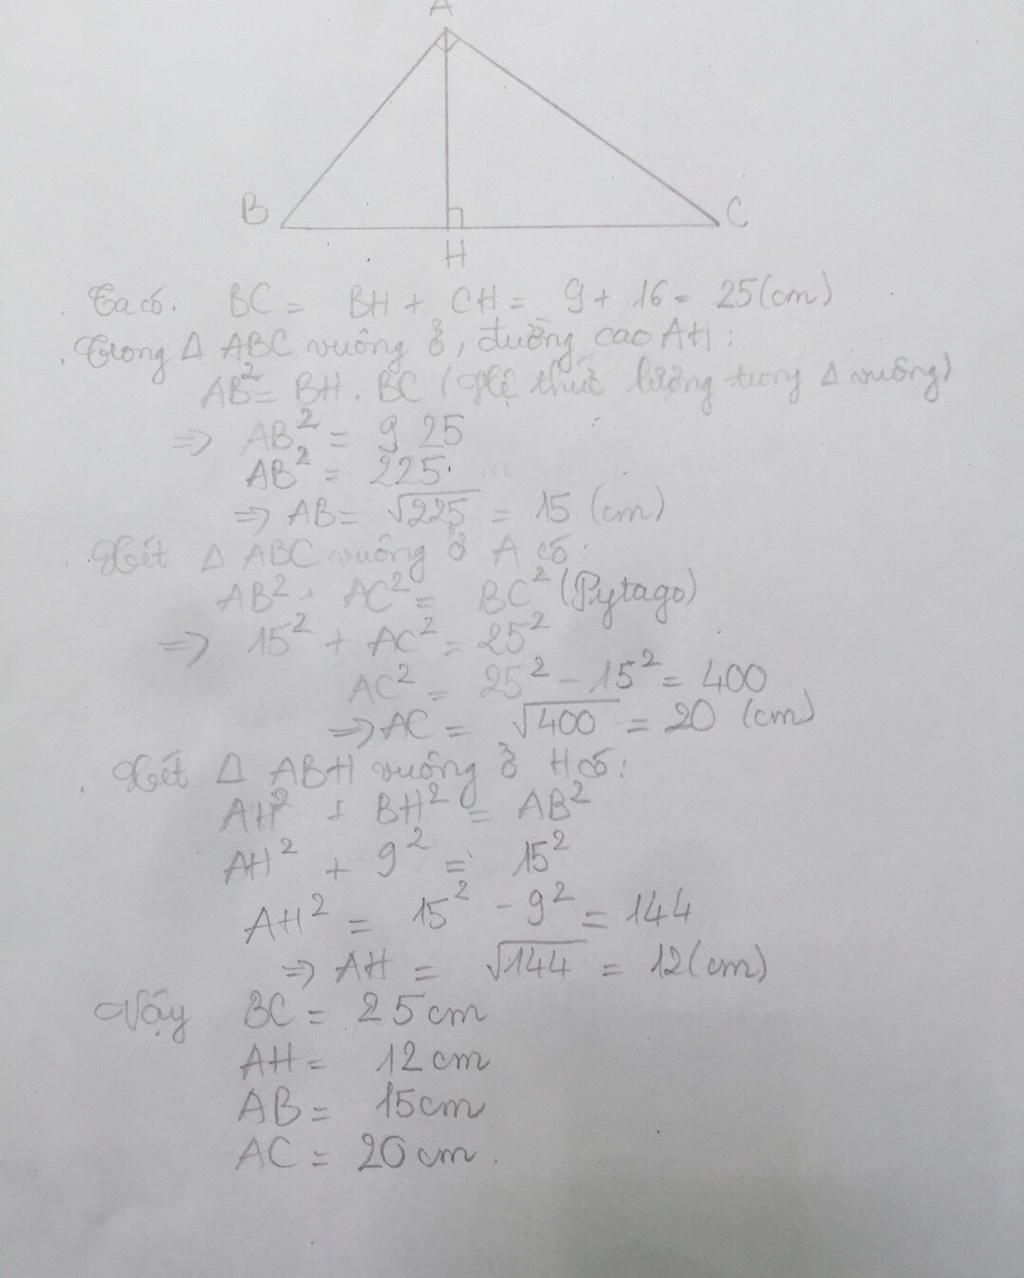 A
B
C
H
Ta có: BC = BH + CH = 9 + 16 = 25(cm)
Trong Δ ABC vuông ở, đường cao AH:
AB² = BH . BC (Hệ thức lượng trong Δ vuông)
=> AB² = 9 25
AB² = 225
=> AB = √225 = 15 (cm)
Xét Δ ABC vuông ở A có:
AB² + AC² = BC² (Pytago)
=> 15² + AC² = 25²
AC² = 25² - 15² = 400
=> AC = √400 = 20 (cm)
Xét Δ ABH vuông ở H có:
AH² + BH² = AB²
AH² + 9² = 15²
AH² = 15² - 9² = 144
=> AH = √144 = 12(cm)
Vậy BC = 25cm
AH = 12cm
AB = 15cm
AC = 20cm.